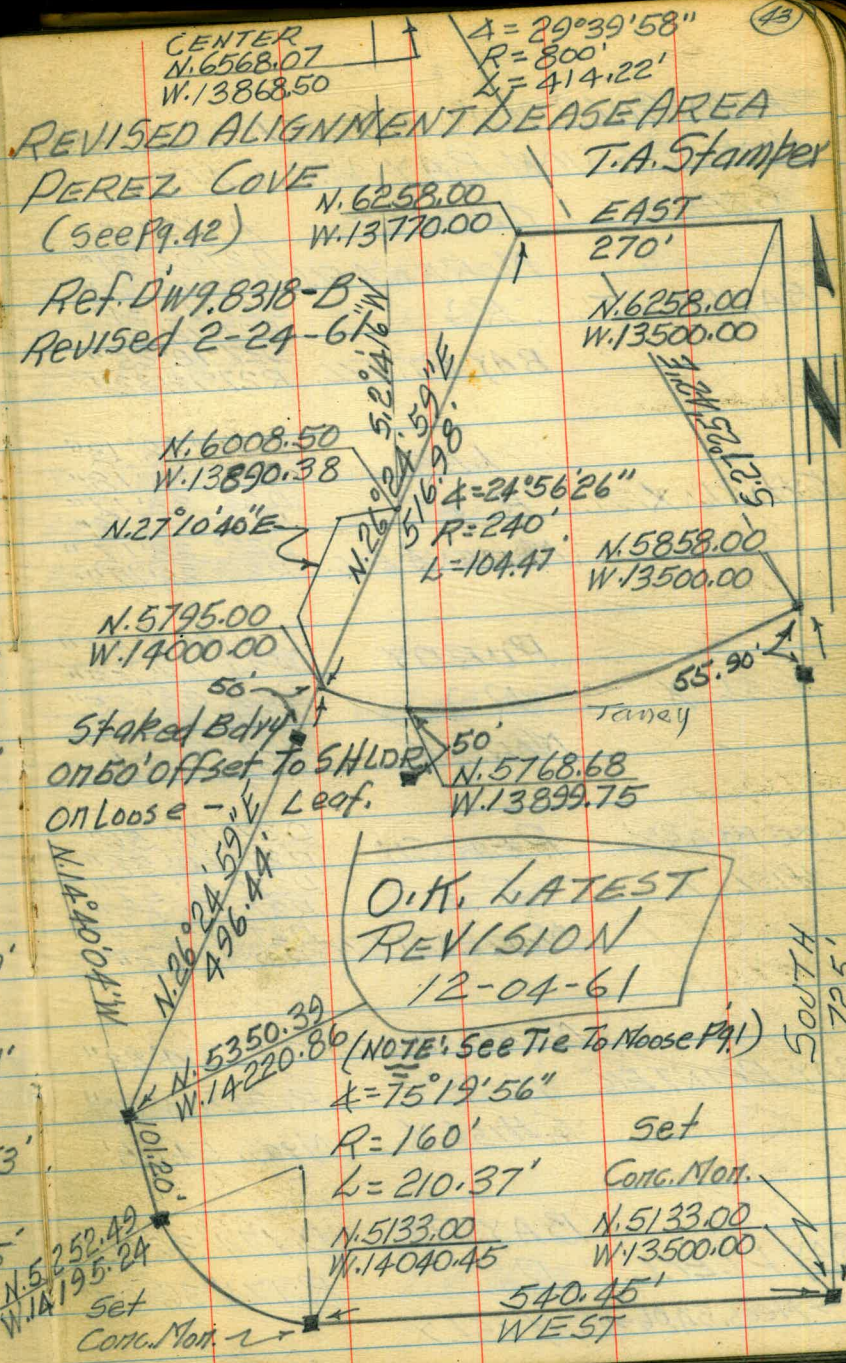 43
CENTER
N.6568.07
W.13868.50
∆ = 29°39'58"
R = 800'
L = 414.22'
REVISED ALIGNMENT LEASE AREA
T.A. Stamper
PEREZ COVE
(See Pg.42)
N.6258.00
W.13770.00
EAST
270'
Ref. DWg.8318-B
Revised 2-24-61
N.6258.00
W.13500.00
S.2°14'16"W
N.26°24'59"E
516.98'
N.6008.50
W.13890.38
N.27°10'40"E
∆=24°56'26"
R=240'
L=104.47
N.5858.00
W.13500.00
N.5795.00
W.14000.00
50'
55.90'
Staked Bdry
on 50' offset To SHLDR
on Loose - Leaf.
50'
N.5768.68
W.13899.75
N.14°40'04"W
N.26°24'59"E
496.44'
O.K. LATEST
REVISION
12-04-61
SOUTH
725'
N.5350.39
W.14220.86
(NOTE: See Tie To Moose Pg.1)
∆=75°19'56"
R=160'
L=210.37'
101.20'
Set
Conc. Mon.
N.5133.00
W.14040.45
N.5133.00
W.13500.00
N.5252.49
W.14195.24
Set
Conc. Mon.
540.45'
WEST